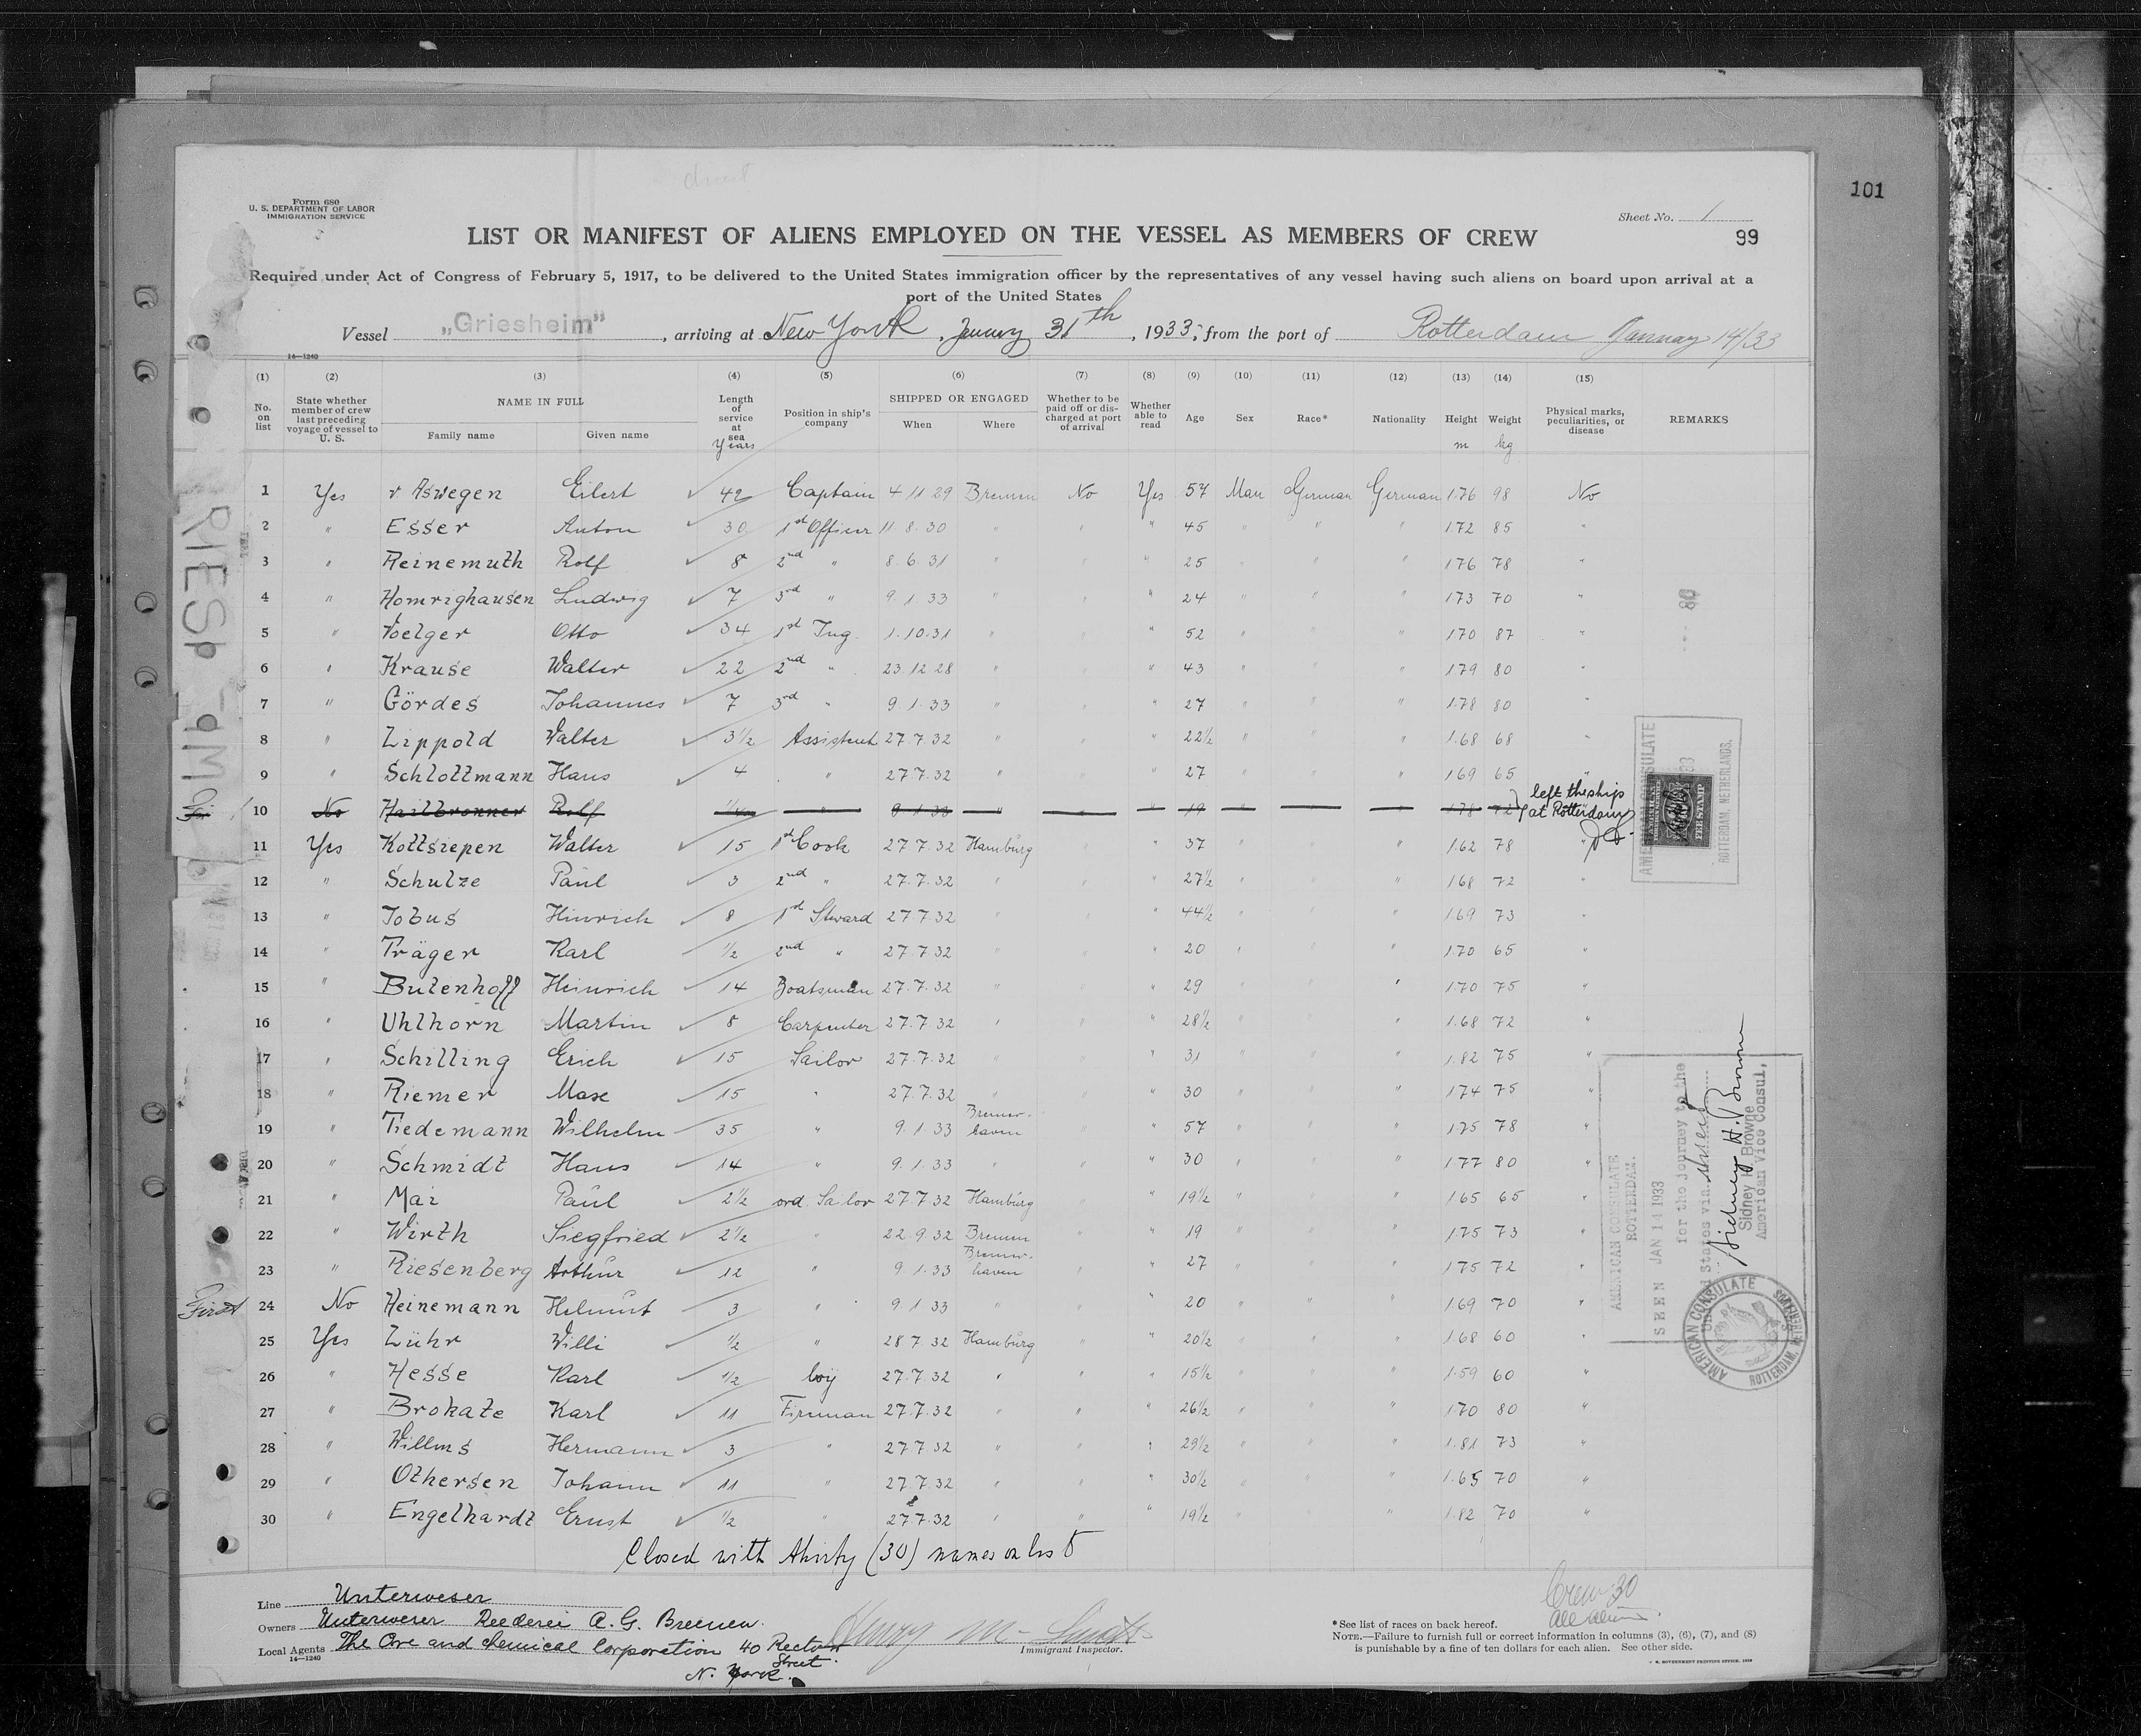 101
Form 680
U. S. DEPARTMENT OF LABOR
IMMIGRATION SERVICE
Sheet No. 1
99
LIST OR MANIFEST OF ALIENS EMPLOYED ON THE VESSEL AS MEMBERS OF CREW
Required under Act of Congress of February 5, 1917, to be delivered to the United States immigration officer by the representatives of any vessel having such aliens on board upon arrival at a
port of the United States
Vessel „Griesheim", arriving at New York, January 31th, 1933, from the port of Rotterdam January 14/33
14—1240
(1) (2) (3) (4) (5) (6) (7) (8) (9) (10) (11) (12) (13) (14) (15)
No. on list State whether member of crew last preceding voyage of vessel to U. S. NAME IN FULL Family name Given name Length of service at sea Years Position in ship's company SHIPPED OR ENGAGED When Where Whether to be paid off or discharged at port of arrival Whether able to read Age Sex Race* Nationality Height m Weight kg Physical marks, peculiarities, or disease REMARKS
1 Yes v Aswegen Eilert 42 Captain 4 11 29 Bremen No Yes 57 Man German German 1.76 98 No
2 " Esser Anton 30 1st Officer 11 8. 30 " " " 45 " " " 1.72 85 "
3 " Reinemuth Rolf 8 2nd " 8. 6. 31 " " " 25 " " " 1.76 78 "
4 " Homrighausen Ludwig 7 3rd " 9. 1. 33 " " " 24 " " " 1.73 70 "
5 " Voelger Otto 34 1st Ing. 1. 10. 31 " " " 52 " " " 1.70 87 "
6 " Krause Walter 22 2nd " 23. 12. 28 " " " 43 " " " 1.79 80 "
7 " Gördes Johannes 7 3rd " 9. 1. 33 " " " 27 " " " 1.78 80 "
8 " Lippold Walter 3½ Assistent 27. 7. 32 " " " 22½ " " " 1.68 68 "
9 " Schlottmann Hans 4 " 27. 7. 32 " " " 27 " " " 1.69 65 "
10 No Hailbronner Rolf " 9. 1. 33 " " " 19 " " " 1.78 72 left the ship at Rotterdam
11 Yes Kottsiepen Walter 15 1st Cook 27. 7. 32 Hamburg " " 37 " " " 1.62 78 "
12 " Schulze Paul 3 2nd " 27. 7. 32 " " " 27½ " " " 1.68 72 "
13 " Jobus Hinrich 8 1st Steward 27. 7. 32 " " " 44½ " " " 1.69 73 "
14 " Träger Karl ½ 2nd " 27. 7. 32 " " " 20 " " " 1.70 65 "
15 " Butenhoff Heinrich 14 Boatsman 27. 7. 32 " " " 29 " " " 1.70 75 "
16 " Uhlhorn Martin 8 Carpenter 27. 7. 32 " " " 28½ " " " 1.68 72 "
17 " Schilling Erich 15 Sailor 27. 7. 32 " " " 31 " " " 1.82 75 "
18 " Riemer Max 15 " 27. 7. 32 " " " 30 " " " 1.74 75 "
19 " Tiedemann Wilhelm 35 " 9. 1. 33 Bremerhaven " " 57 " " " 1.75 78 "
20 " Schmidt Hans 14 " 9. 1. 33 " " " 30 " " " 1.77 80 "
21 " Mai Paul 2½ ord. Sailor 27 7 32 Hamburg " " 19½ " " " 1.65 65 "
22 " Wirth Siegfried 2½ " 22. 9. 32 Bremen " " 19 " " " 1.75 73 "
23 " Riesenberg Arthur 12 " 9. 1. 33 Bremerhaven " " 27 " " " 1.75 72 "
First 24 No Heinemann Helmut 3 " 9. 1 33 " " " 20 " " " 1.69 70 "
25 Yes Lühr Willi ½ " 28 7. 32 Hamburg " " 20½ " " " 1.68 60 "
26 " Hesse Karl ½ boy 27. 7. 32 " " " 15½ " " " 1.59 60 "
27 " Brokate Karl 11 Fireman 27. 7. 32 " " " 26½ " " " 1.70 80 "
28 " Willms Hermann 3 " 27. 7. 32 " " " 29½ " " " 1.81 73 "
29 " Othersen Johann 11 " 27. 7. 32 " " " 30½ " " " 1.65 70 "
30 " Engelhardt Ernst ½ " 27. 7. 32 " " " 19½ " " " 1.82 70 "
Closed with thirty (30) names on list
AMERICAN CONSULATE
ROTTERDAM, NETHERLANDS.
FEE STAMP
AMERICAN CONSULATE
ROTTERDAM.
SEEN JAN 14 1933
for the journey to the
United States via direct
Sidney H. Browne
Sidney H. Browne
American Vice Consul,
AMERICAN CONSULATE
ROTTERDAM, NETHERLANDS
Line Unterweser
Owners Unterweser Reederei A. G. Bremen.
Local Agents The Ore and Chemical Corporation 40 Rector Street.
N. York.
14—1240
Immigrant Inspector.
Crew 30
All aliens.
*See list of races on back hereof.
NOTE.—Failure to furnish full or correct information in columns (3), (6), (7), and (8)
is punishable by a fine of ten dollars for each alien. See other side.
U. S. GOVERNMENT PRINTING OFFICE